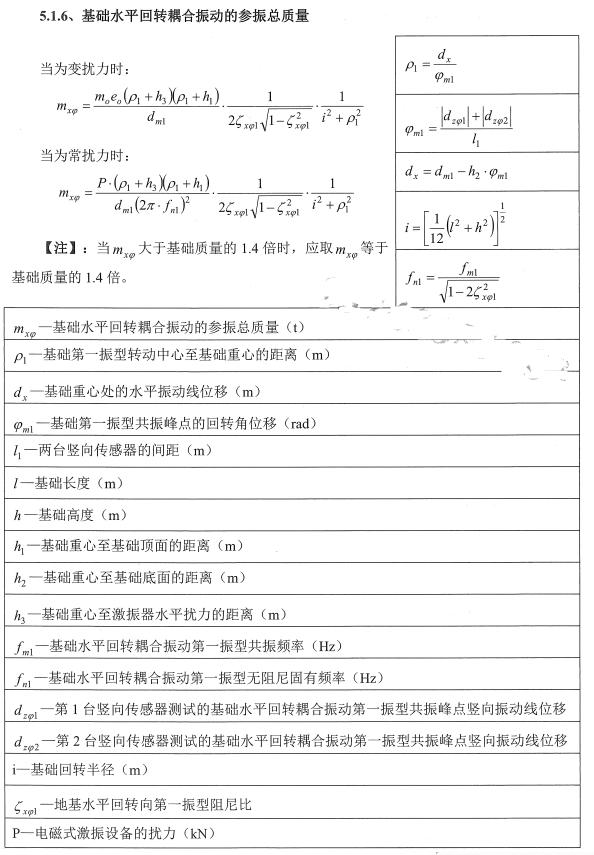 5.1.6、基础水平回转耦合振动的参振总质量
当为变扰力时：
m_{xφ} = \frac{m_o e_o (ρ_1 + h_3)(ρ_1 + h_1)}{d_{m1}} · \frac{1}{2ζ_{xφ1}\sqrt{1-ζ_{xφ1}^2}} · \frac{1}{i^2 + ρ_1^2}
当为常扰力时：
m_{xφ} = \frac{P·(ρ_1 + h_3)(ρ_1 + h_1)}{d_{m1}(2π·f_{n1})^2} · \frac{1}{2ζ_{xφ1}\sqrt{1-ζ_{xφ1}^2}} · \frac{1}{i^2 + ρ_1^2}
【注】：当m_{xφ}大于基础质量的 1.4 倍时，应取m_{xφ}等于
基础质量的 1.4 倍。
ρ_1 = \frac{d_x}{φ_{m1}}
φ_{m1} = \frac{|d_{zφ1}| + |d_{zφ2}|}{l_1}
d_x = d_{m1} - h_2 · φ_{m1}
i = \left[\frac{1}{12}(l^2 + h^2)\right]^{\frac{1}{2}}
f_{n1} = \frac{f_{m1}}{\sqrt{1-2ζ_{xφ1}^2}}
m_{xφ}—基础水平回转耦合振动的参振总质量（t）
ρ_1—基础第一振型转动中心至基础重心的距离（m）
d_x—基础重心处的水平振动线位移（m）
φ_{m1}—基础第一振型共振峰点的回转角位移（rad）
l_1—两台竖向传感器的间距（m）
l—基础长度（m）
h—基础高度（m）
h_1—基础重心至基础顶面的距离（m）
h_2—基础重心至基础底面的距离（m）
h_3—基础重心至激振器水平扰力的距离（m）
f_{m1}—基础水平回转耦合振动第一振型共振频率（Hz）
f_{n1}—基础水平回转耦合振动第一振型无阻尼固有频率（Hz）
d_{zφ1}—第 1 台竖向传感器测试的基础水平回转耦合振动第一振型共振峰点竖向振动线位移
d_{zφ2}—第 2 台竖向传感器测试的基础水平回转耦合振动第一振型共振峰点竖向振动线位移
i—基础回转半径（m）
ζ_{xφ1}—地基水平回转向第一振型阻尼比
P—电磁式激振设备的扰力（kN）